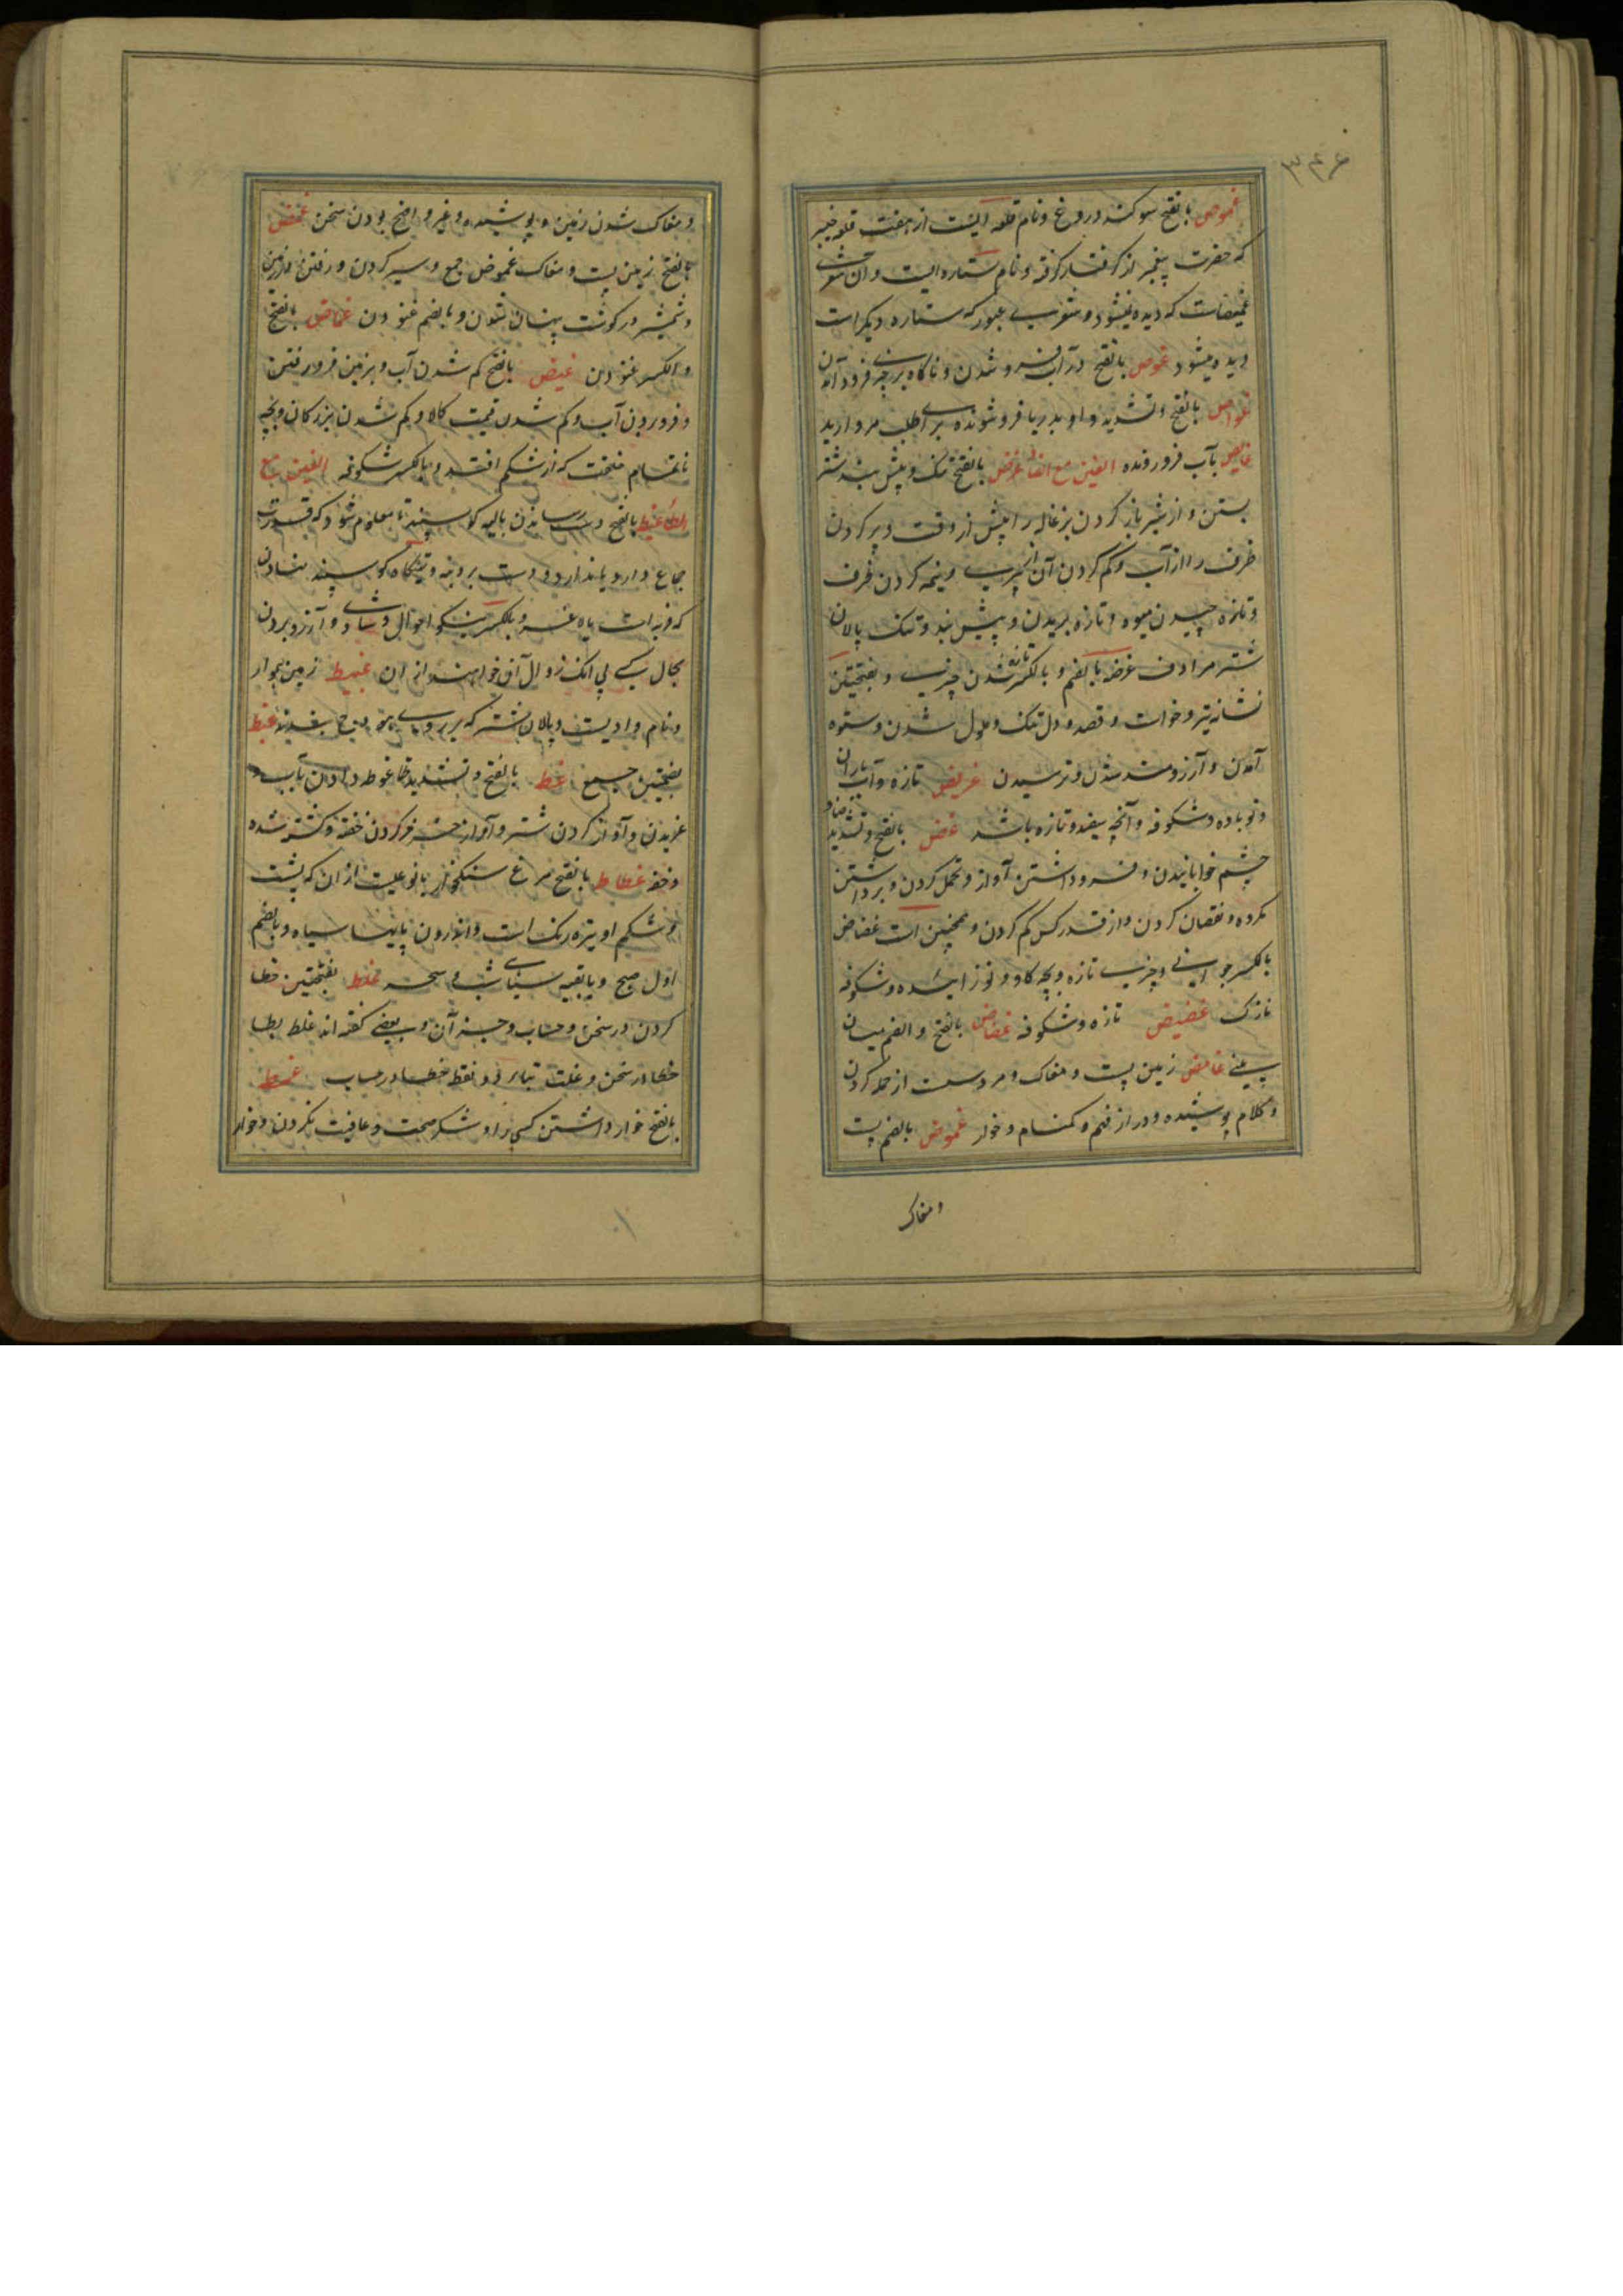 ۳۴۶
غموص بالفتح سوکند دروغ و نام قلعه ایست از هفت قلعه خیبر
که حضرت پیغمبر از کفار گرفته و نام ستاره ایست و آن شعرای
غمیصاست که دیده نمیشود و شعرای عبور که ستاره دیگر است
دیده میشود غوص بالفتح در آب فرو شدن و ناگاه بر چیزی فرود آمدن
غواص بالفتح و تشدید واو بدریا فرو شونده برای طلب مروارید
غایص بآب فرو رونده الغین مع الضاد غرض بالفتح تنک و پیش بند شتر
بستن و از شیر باز کردن بزغاله را پیش از وقت و پر کردن
ظرف را از آب و کم کردن آن از پری و نیمه کردن ظرف
و تازه چیدن میوه و تازه بریدن و پیش بند و تنک پالان
شتر مرادف غرضه بالضم و بالکسر تازه شدن چیزی و بفتحتین
نشانه تیر و خواست و قصد و دل تنک و ملول شدن و ستوه
آمدن و آرزومند شدن و ترسیدن غریض تازه و آب باران
و نوباده و شکوفه و آنچه سفید و تازه باشد غض بالفتح و تشدید ضاد
چشم خوابانیدن و فرو داشتن آواز و تحمل کردن و برداشتن
مکروه و نقصان کردن و از قدر کس کم کردن و همچنین است غضاض
بالکسر جوانی و چیزی تازه و بچه گاو نوزائیده و شکوفه
نازک غضیض تازه و شکوفه غضاض بالفتح و الضم میان
بینی غامض زمین پست و مغاک و مرد سست از حمله کردن
و کلام پوشیده و دور از فهم و کمنام و خوار غموض بالضم پست
و مغاک
و مغاک شدن زمین و پوشیده و غیر واضح بودن سخن غمض
بالفتح زمین پست و مغاک غموض جمع و سیر کردن و رفتن در زمین
و شمشیر در گوشت پنهان شدن و بالضم غنودن غماض بالفتح
و الکسر غنودن غیض بالفتح کم شدن آب و بزمین فرو رفتن
و فرو بردن آب و کم شدن قیمت کالا و کم شدن بزرکان و بچه
ناتمام خلقت که از شکم افتد و بالکسر شکوفه الغین مع
الطاء غبط بالفتح دست رساندن بالیه کوسپند تا معلوم شود که قدرت
جماع دارد یا ندارد و دست بر دنبه و تهیکاه کوسپند نهادن
که فربه است یا لاغر و بالکسر نیکو احوالی و شادی و آرزو بردن
بحال کسی بی آنکه زوال آن خواهند از آن غبیط زمین هموار
و نام وادیست و پالان شتر که بر روی هودج بندند غبط
بضمتین جمع غط بالفتح و تشدید طا غوطه دادن بآب و
غریدن و آواز کردن شتر و آواز خرخر کردن خفته و کشته شده
و خفه غطاط بالفتح مرغ سنکخوار یا نوعیست از آن که پشت
و شکم او تیره رنک است و اندرون بالها سیاه و بالضم
اول صبح و یا بقیه سیاهی شب و سحر غلط بفتحتین خطا
کردن در سخن و حساب و جز آن و بعضی کفته اند غلط بطا
خطا در سخن و غلت بتا بر دو نقط خطا در حساب غمط
بالفتح خوار داشتن کسی را و شکر صحت و عافیت نکردن و خوار